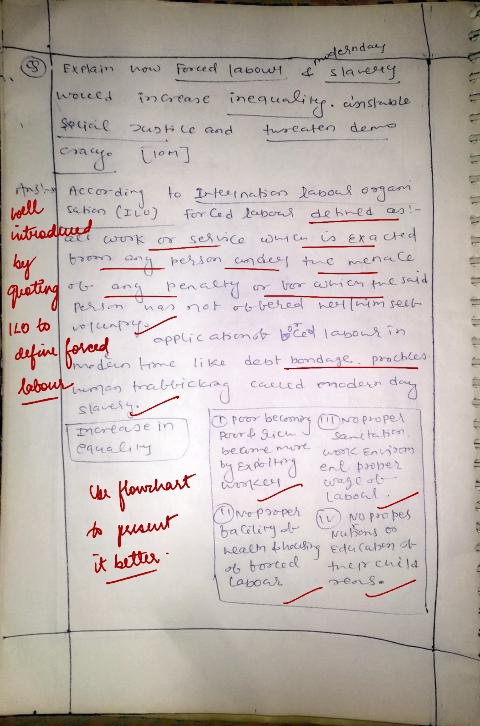 Q Explain how Forced labour & modernday slavery
would increase inequality. unstable
social justice and threaten demo
cracy. [10M]
Ans:- According to Internation labour organi
sation (ILO) forced labour defined as:-
all work or service which is exacted
from any person under the menace
of any penalty or for which the said
person has not offered her/himself
voluntry.
application of forced labour in
modern time like debt bondage,
human trafficking called modern day
slavery.
well
introduced
by
quoting
ILO to
define forced
labour
Increase in
equality
Use flowchart
to present
it better.
(i) Poor becoming
Poor & rich
become more
by Exploiting
worker
(ii) No proper
facility of
health & housing
of forced
labour
(iii) No proper
sanitation.
work Environm
ent proper
wage of
labour.
(iv) No proper
Nutrions or
Education of
their child
rens.